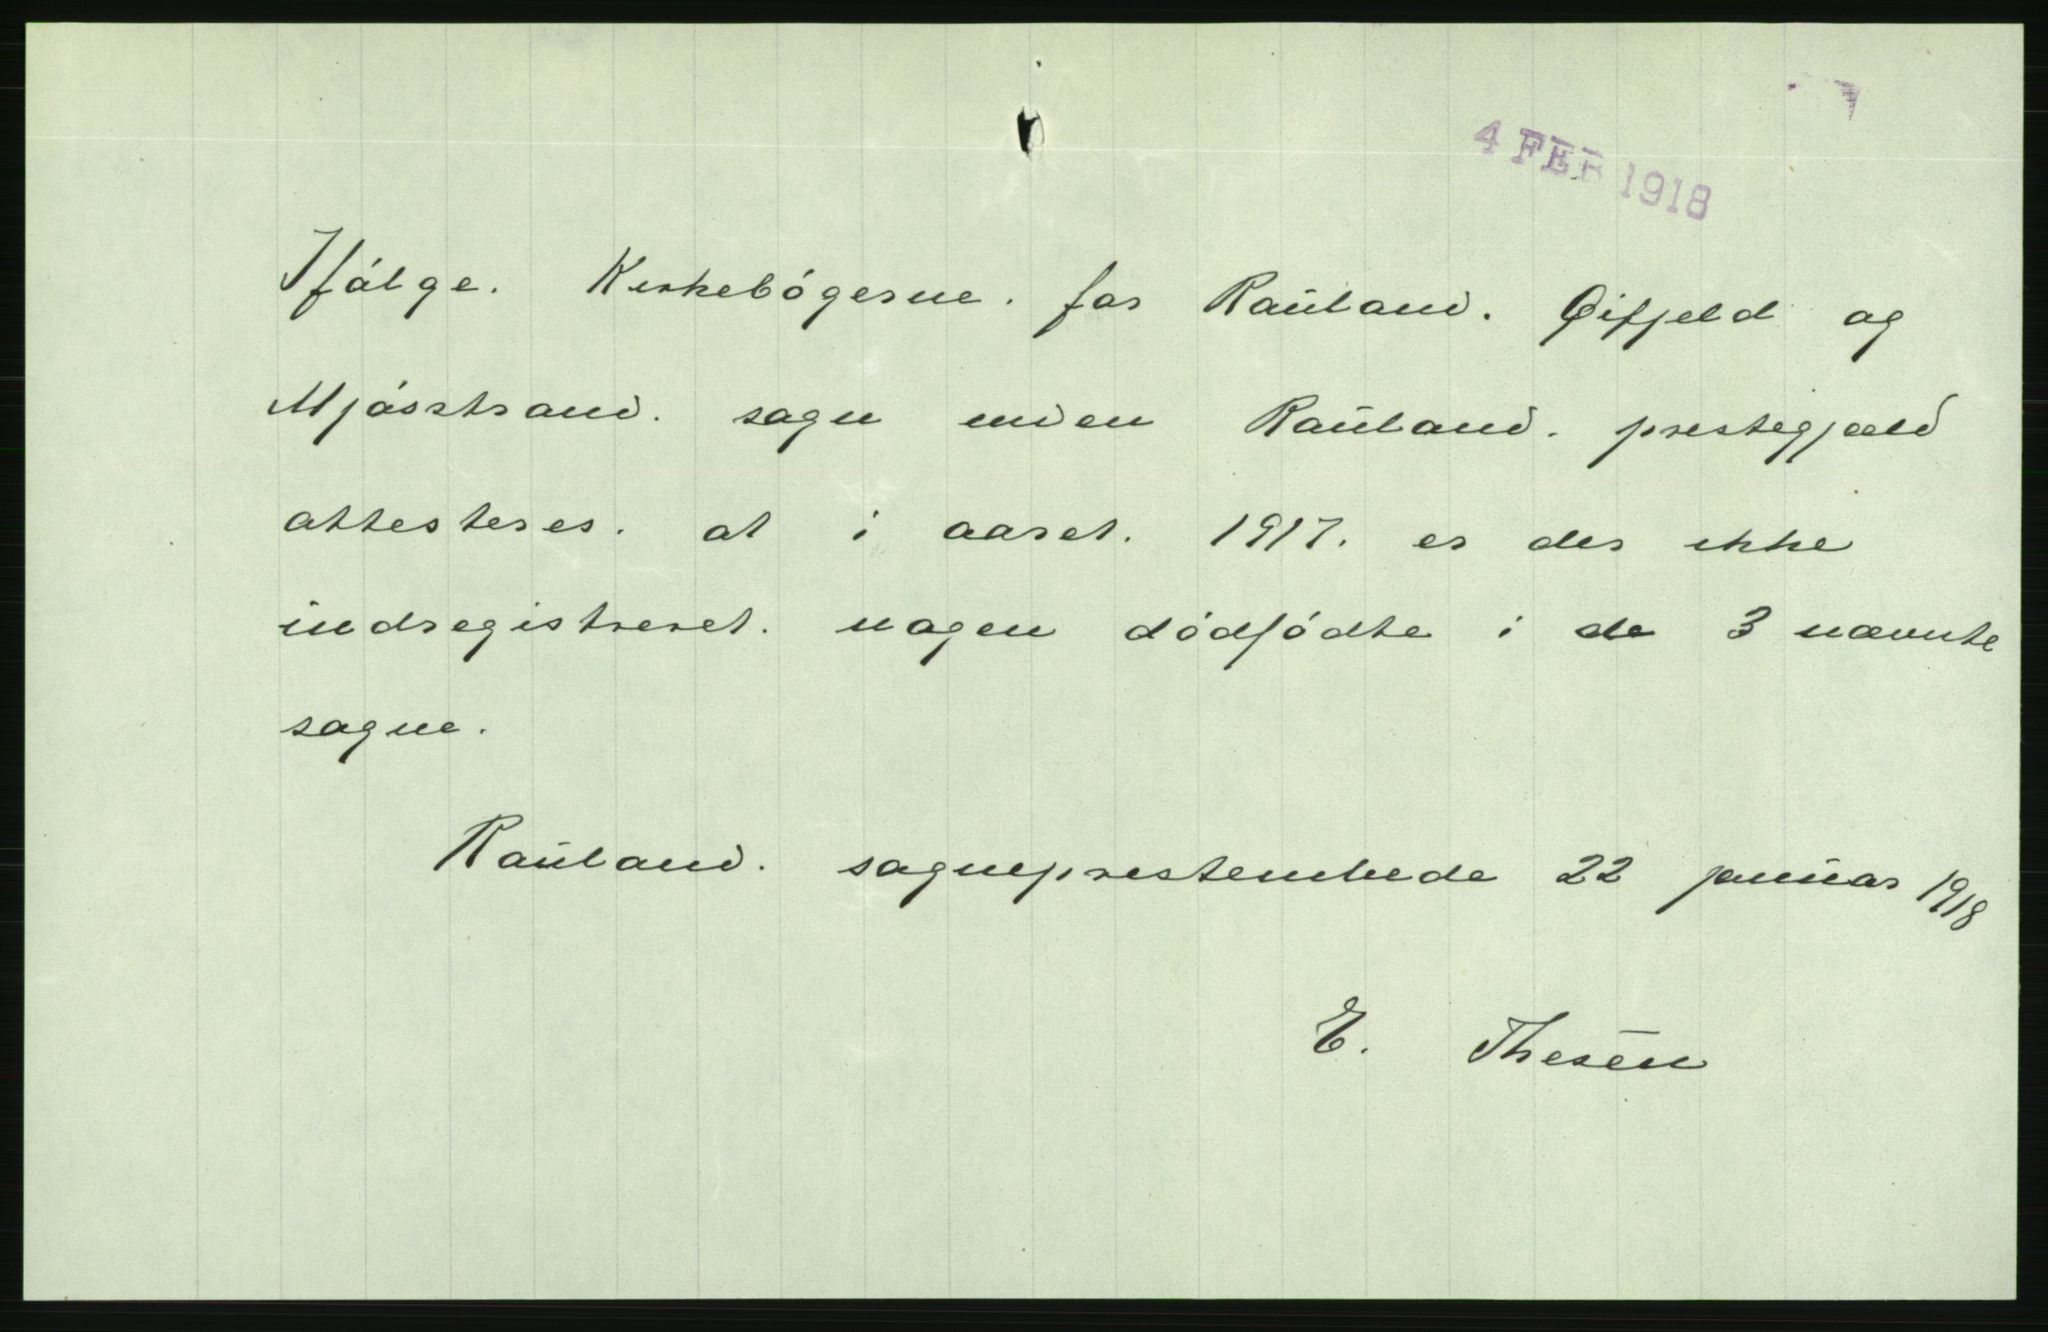 4 FEB 1918
Ifólge. Kirkebógerne. for Rauland. Øifjeld og
Mjósstrand. sogn uuden Rauland. prestegjæld
attesteres. at i aaret. 1917. er der ikke
indregistreret. nogen dódfódte i de 3 nævnte
sogne.
Rauland. sogneprestembede 22 januar 1918
E. Thesen